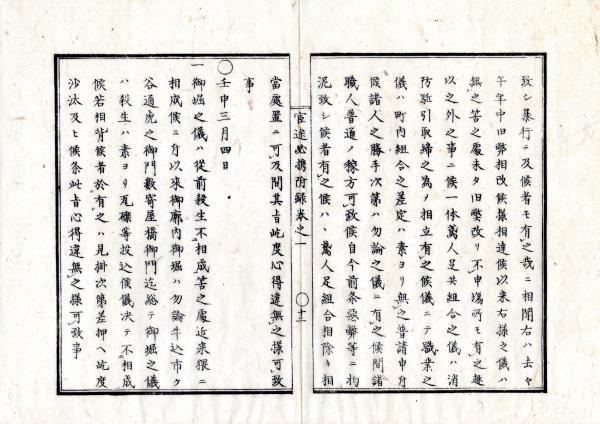 致シ暴行ニ及候者モ有之哉ニ相聞右ハ去々
午年中旧弊相改候様相達候以来右様之儀ハ
無之筈之處未タ旧弊改リ不申場所モ有之趣
以之外之事ニ候一体鳶人足共組合之儀ハ消
防駈引取締之為メ相立有之候儀ニテ職業之
儀ハ町内組合之差定ハ素ヨリ無之普請申付
候諸人之勝手次第ハ勿論之儀ニ有之候間諸
職人普通ノ稼方可致候自今前条惡弊等ニ拘
泥致シ候者有之候ハヽ鳶人足組合相除キ相
官途必携附録巻之一
〇十二
當處置ニ可及間其旨此度心得違無之様可致
事
〇壬申三月四日
一御堀之儀ハ從前殺生不相成筈之處近来猥ニ
相成候ニ付以来御廓内御堀ハ勿論牛込市ケ
谷通虎之御門數寄屋橋御門迄總テ御堀之儀
ハ殺生ハ素ヨリ瓦礫等投込候儀決テ不相成
候若相背候者於有之ハ見掛次第差押ヘ此度
沙汰及ヒ候条此旨心得違無之様可致事